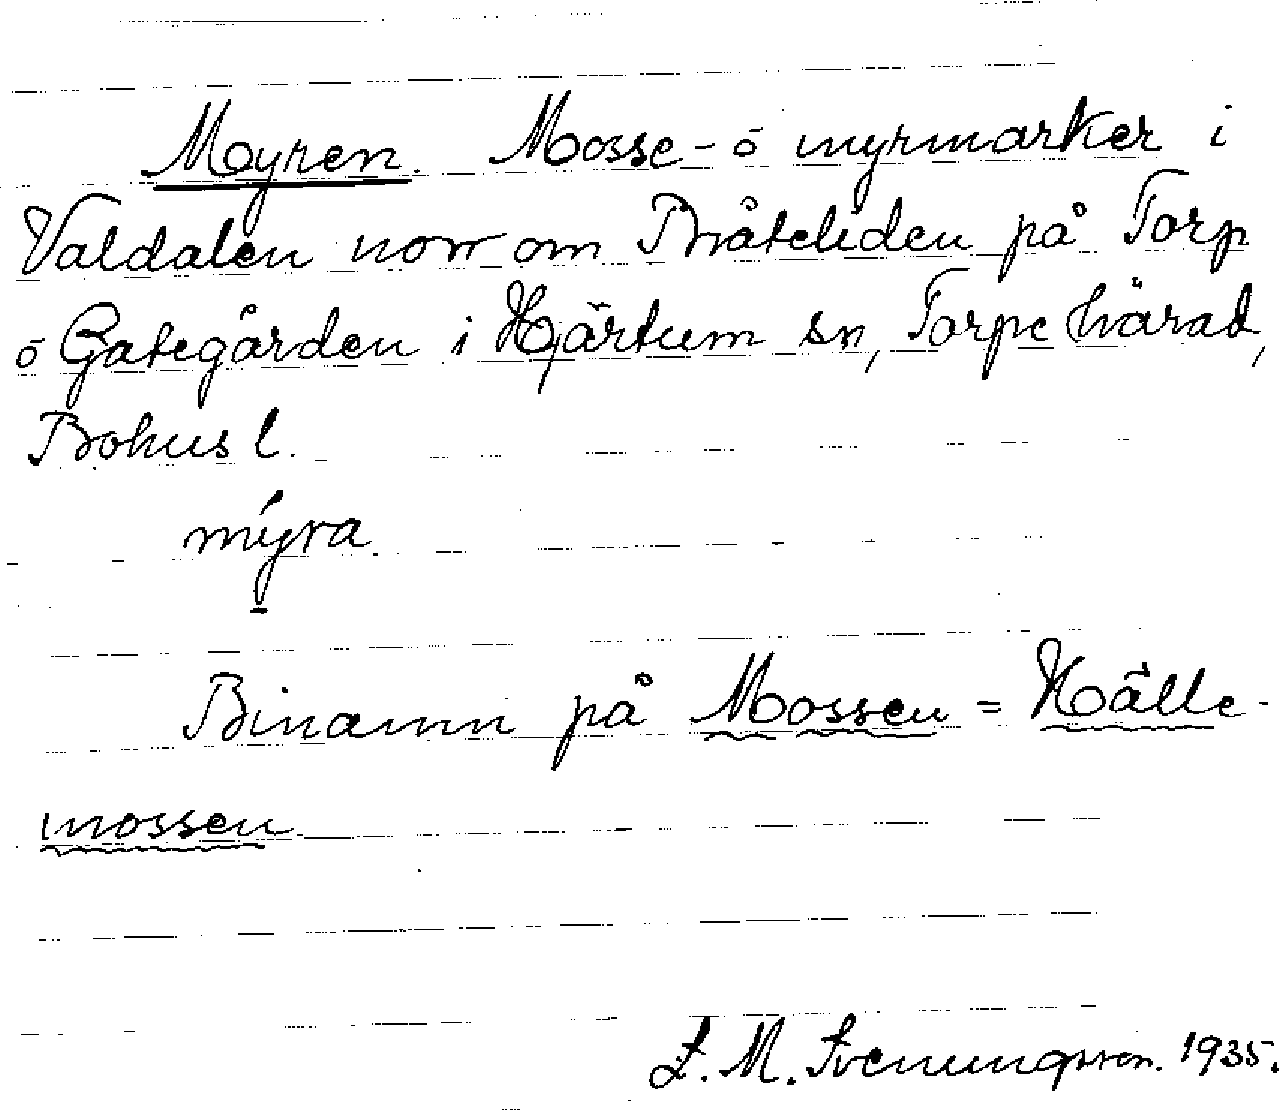 Myren. Mosse- ó myrmarker i
Valdalen norr om Bråteliden på Torp
ó Gategården i Hjärtum sn, Torpe härad,
Bohusl.
mýra.
Binamn på Mossen = Hälle-
mossen
L. M. Svenungsson. 1935.